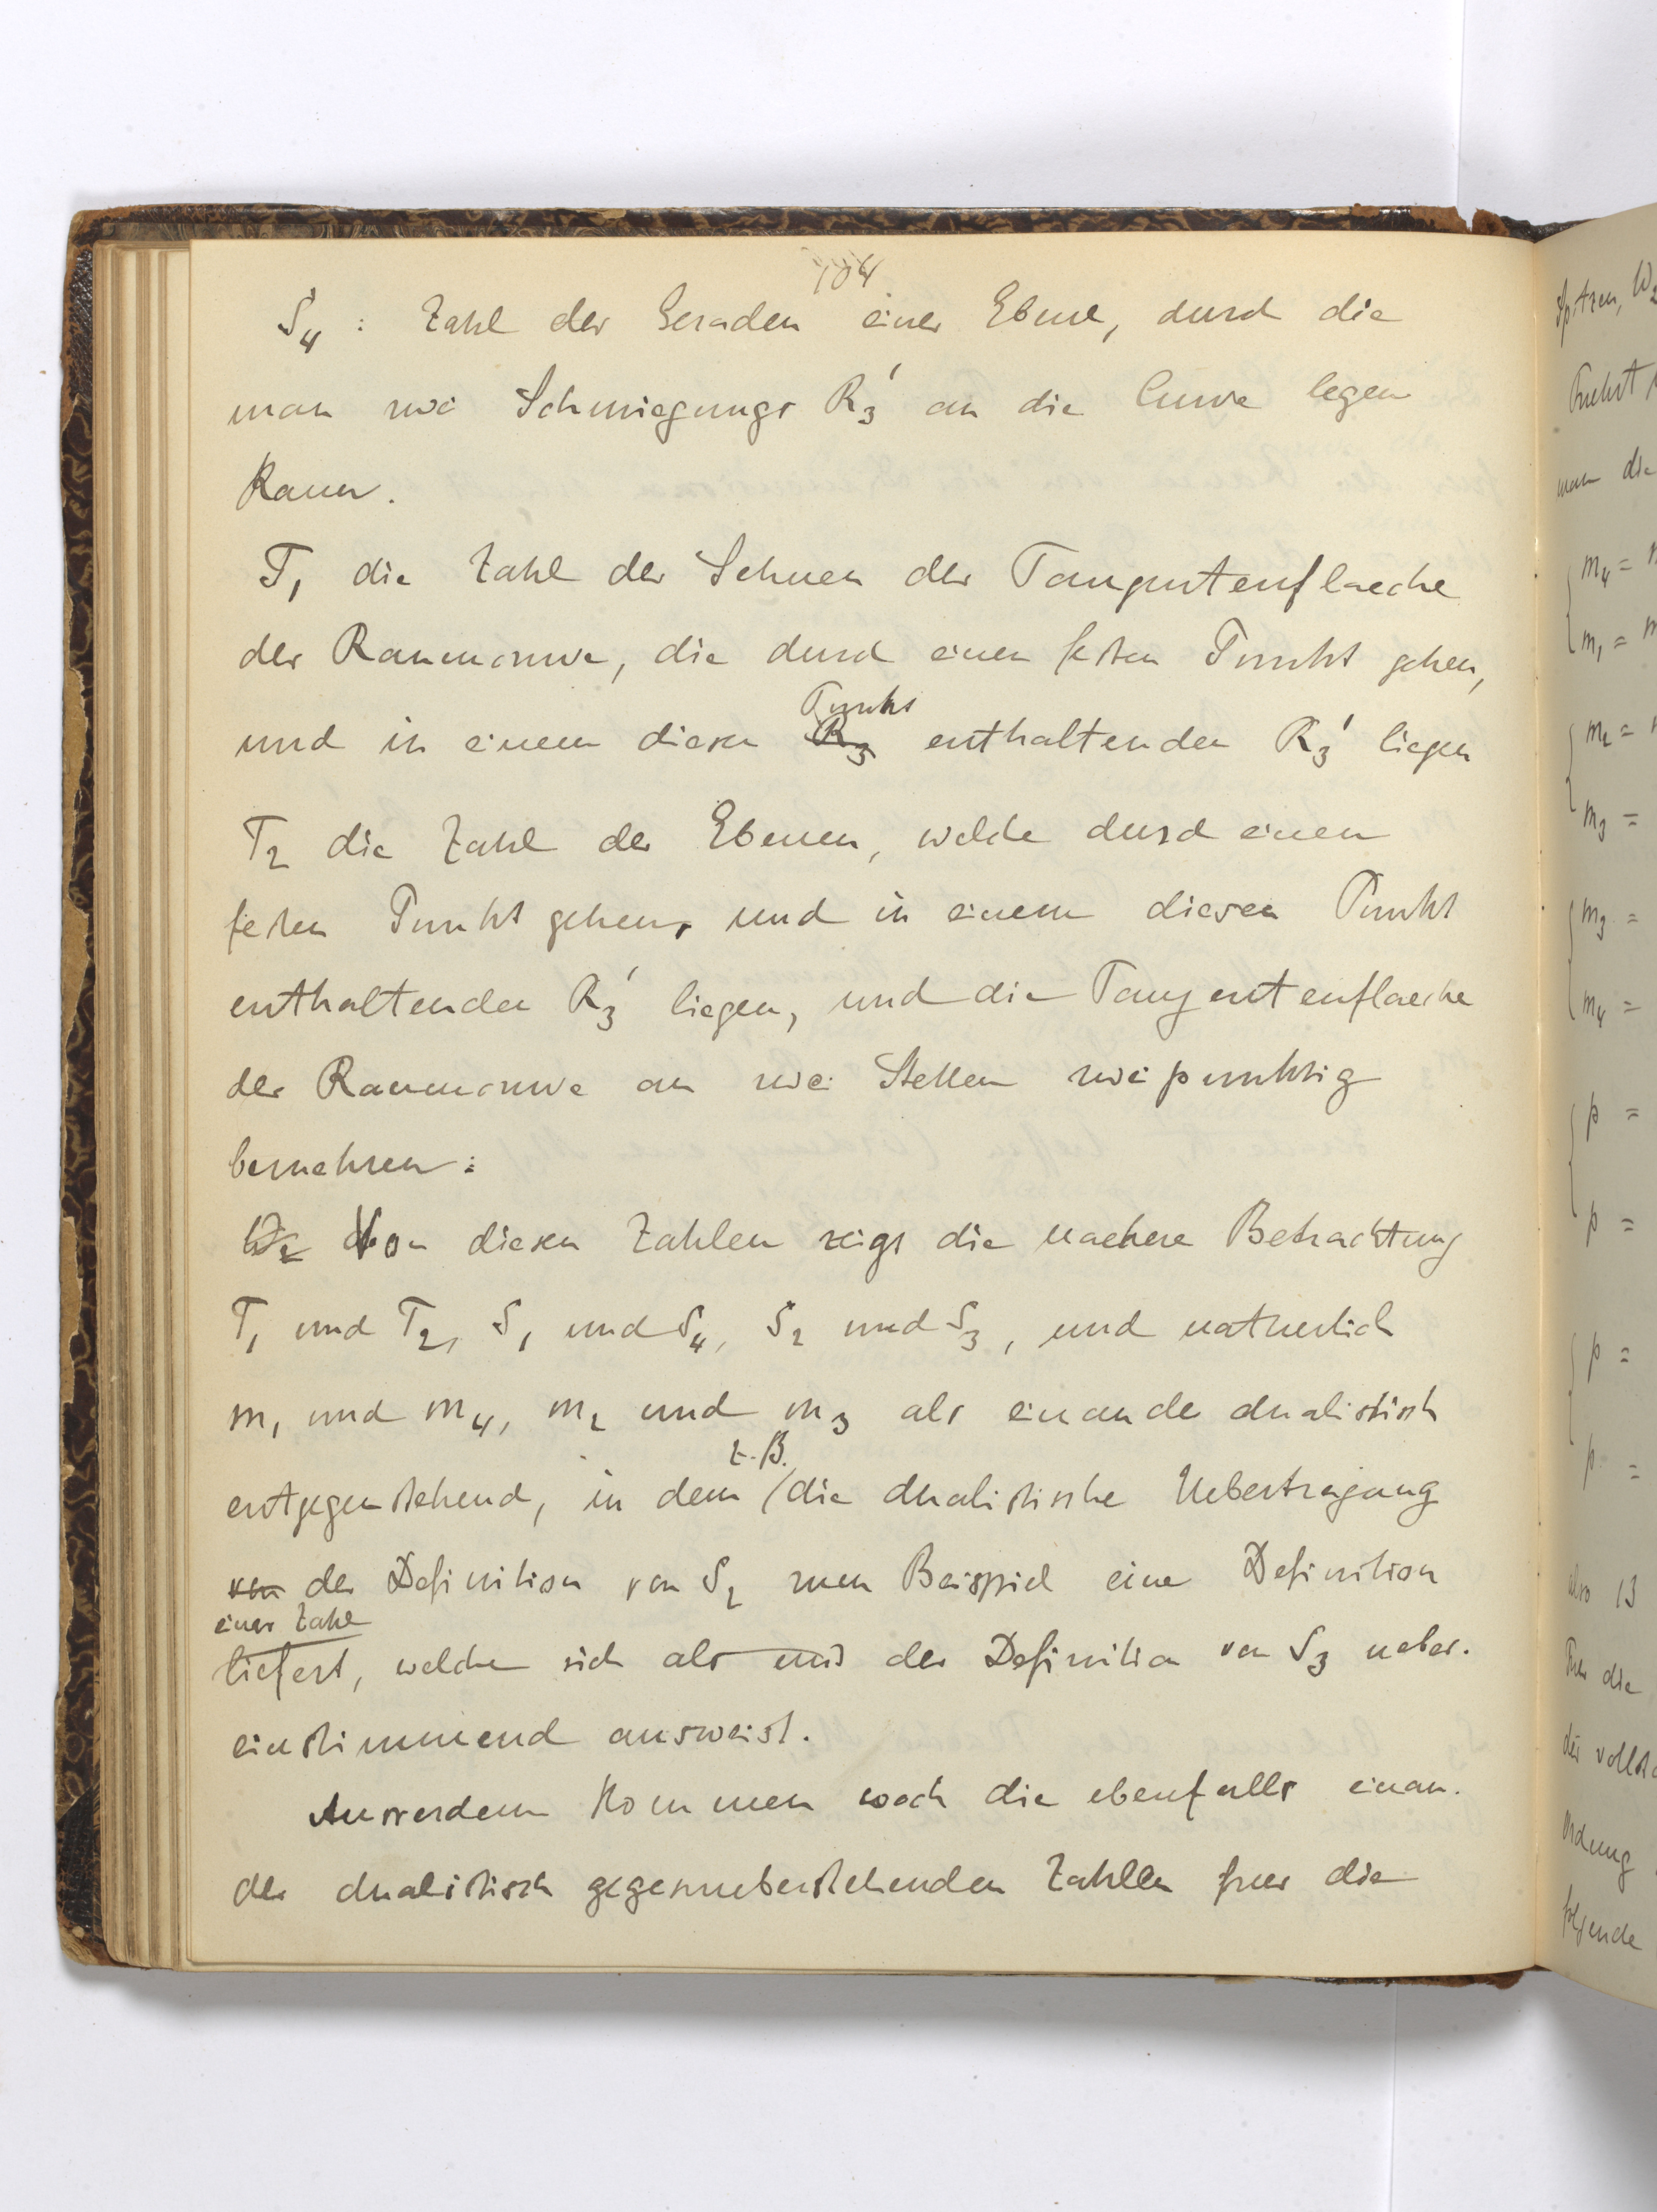 104
S₄ : Zahl der Geraden einer Ebene, durch die
man zwei Schmiegungs R₃' an die Curve legen
Kann.
T₁ die Zahl der Sehnen der Tangentenflaeche
der Raumcurve, die durch einen festen Punkt gehen,
Punkt
und in einem diesen R₃ enthaltenden R₃' liegen
T₂ die Zahl der Ebenen, welche durch einen
festen Punkt gehen, und in einem diesen Punkt
enthaltenden R₃' liegen, und die Tangentenflaeche
der Raumcurve an zwei Stellen zweipunktig
beruehren:
Von diesen Zahlen zeigt die naehere Betrachtung
T₁ und T₂, S₁ und S₄, S₂ und S₃, und natuerlich
m₁ und m₄, m₂ und m₃ als einander dualistisch
z.B.
entgegenstehend, in dem die dualistische Uebertragung
von der Definition von S₂ zum Beispiel eine Definition
einer Zahl
liefert, welche sich als mit der Definition von S₃ ueber-
einstimmend ausweist.
Ausserdem Kommen noch die ebenfalls einan-
der dualistisch gegenueberstehenden Zahlen fuer die
Spitzen, W₂
man die
m₄ =
m₁ =
m₂ =
m₃ =
m₃ =
m₄ =
p =
p =
p =
p =
also 13
die
Ordnung
folgende